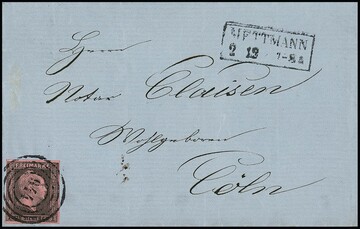 METTMANN
2 12 7-8
Herrn
Notar Claisen
Wohlgeboren
Cöln
FREIMARKE